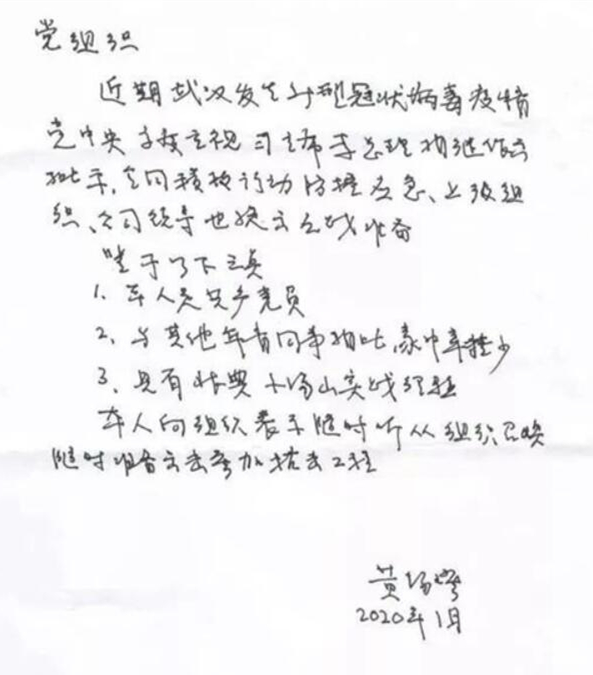 党组织
近期武汉发生新型冠状病毒疫情
党中央高度重视习主席李总理相继作出
批示,全国积极行动防控应急、上级组
织、公司领导也指示备战准备
鉴于以下三点
1、本人是共产党员
2、与其他年青同事相比,家中牵挂少
3、具有非典小汤山实战经验
本人向组织表示随时听从组织召唤
随时准备出去参加抗击工程
黄
2020年1月